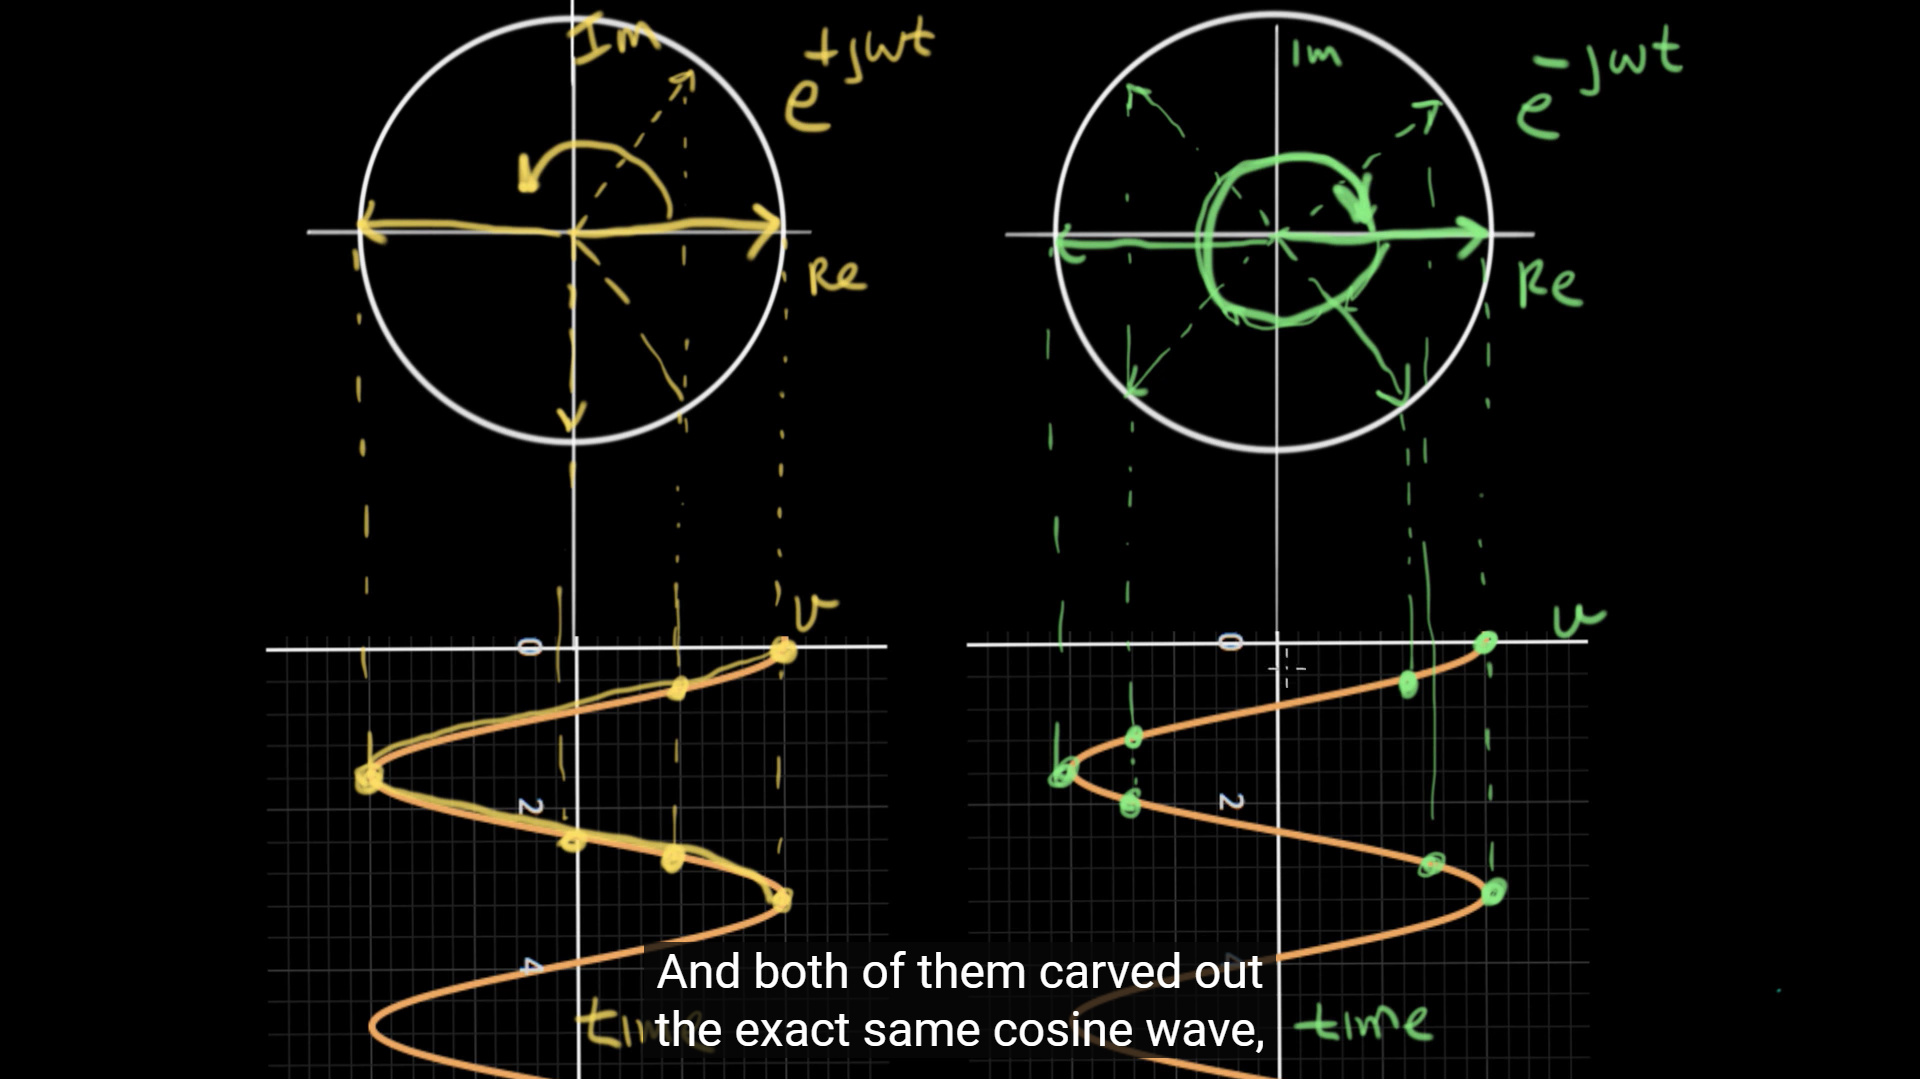 Im
e^{+jwt}
Re
Im
e^{-jwt}
Re
v
0
2
4
time
v
0
2
time
And both of them carved out
the exact same cosine wave,